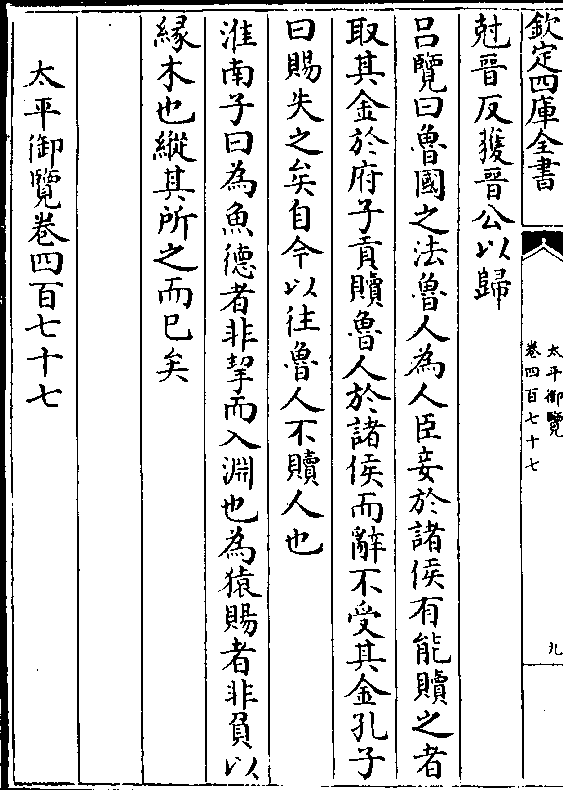 欽定四庫全書
太平御覽
卷四百七十七
九
尅晉反獲晉公以歸
吕覽曰魯國之法魯人為人臣妾於諸侯有能贖之者
取其金於府子貢贖魯人於諸侯而辭不受其金孔子
曰賜失之矣自今以往魯人不贖人也
淮南子曰為魚德者非挈而入淵也為猿賜者非負以
緣木也縱其所之而已矣
太平御覽卷四百七十七